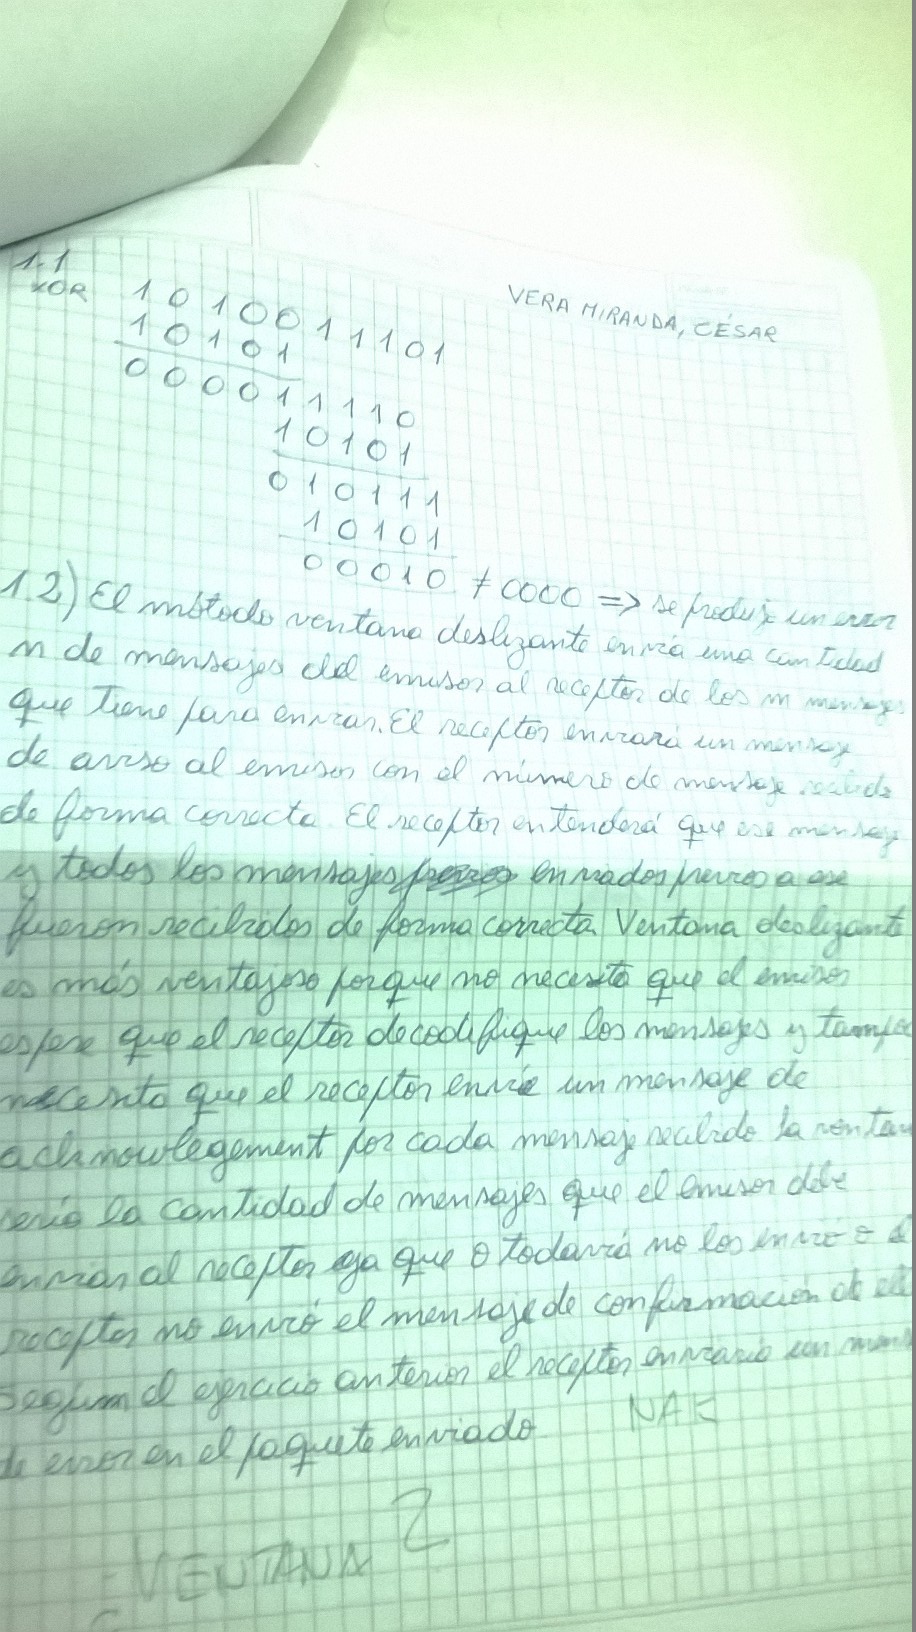 1.1
XOR 1010011101
VERA MIRANDA, CÉSAR
10101
000011110
10101
010111
10101
00010 ≠ 0000 => se produje un error
1.2) El método ventana deslizante envía una cantidad
n de mensajes del emisor al receptor de los m mensajes
que tiene para enviar. El receptor enviará un mensaje
de aviso al emisor con el número de mensaje recibido
de forma correcta. El receptor entenderá que ese mensaje
y todos los mensajes enviados previos a ese
fueron recibidos de forma correcta. Ventana deslizante
es más ventajoso porque no necesita que el emisor
espere que el receptor decodifique los mensajes y tampoc
necesita que el receptor envíe un mensaje de
acknowlegement por cada mensaje recibido la ventan
sería la cantidad de mensajes que el emisor debe
enviar al receptor ya que o todavía no los envió o el
receptor no envió el mensaje de confirmación de ell
Segun el ejercicio anterior el receptor enviaria un mens
de error en el paquete enviado NAK
- VENTANA 2